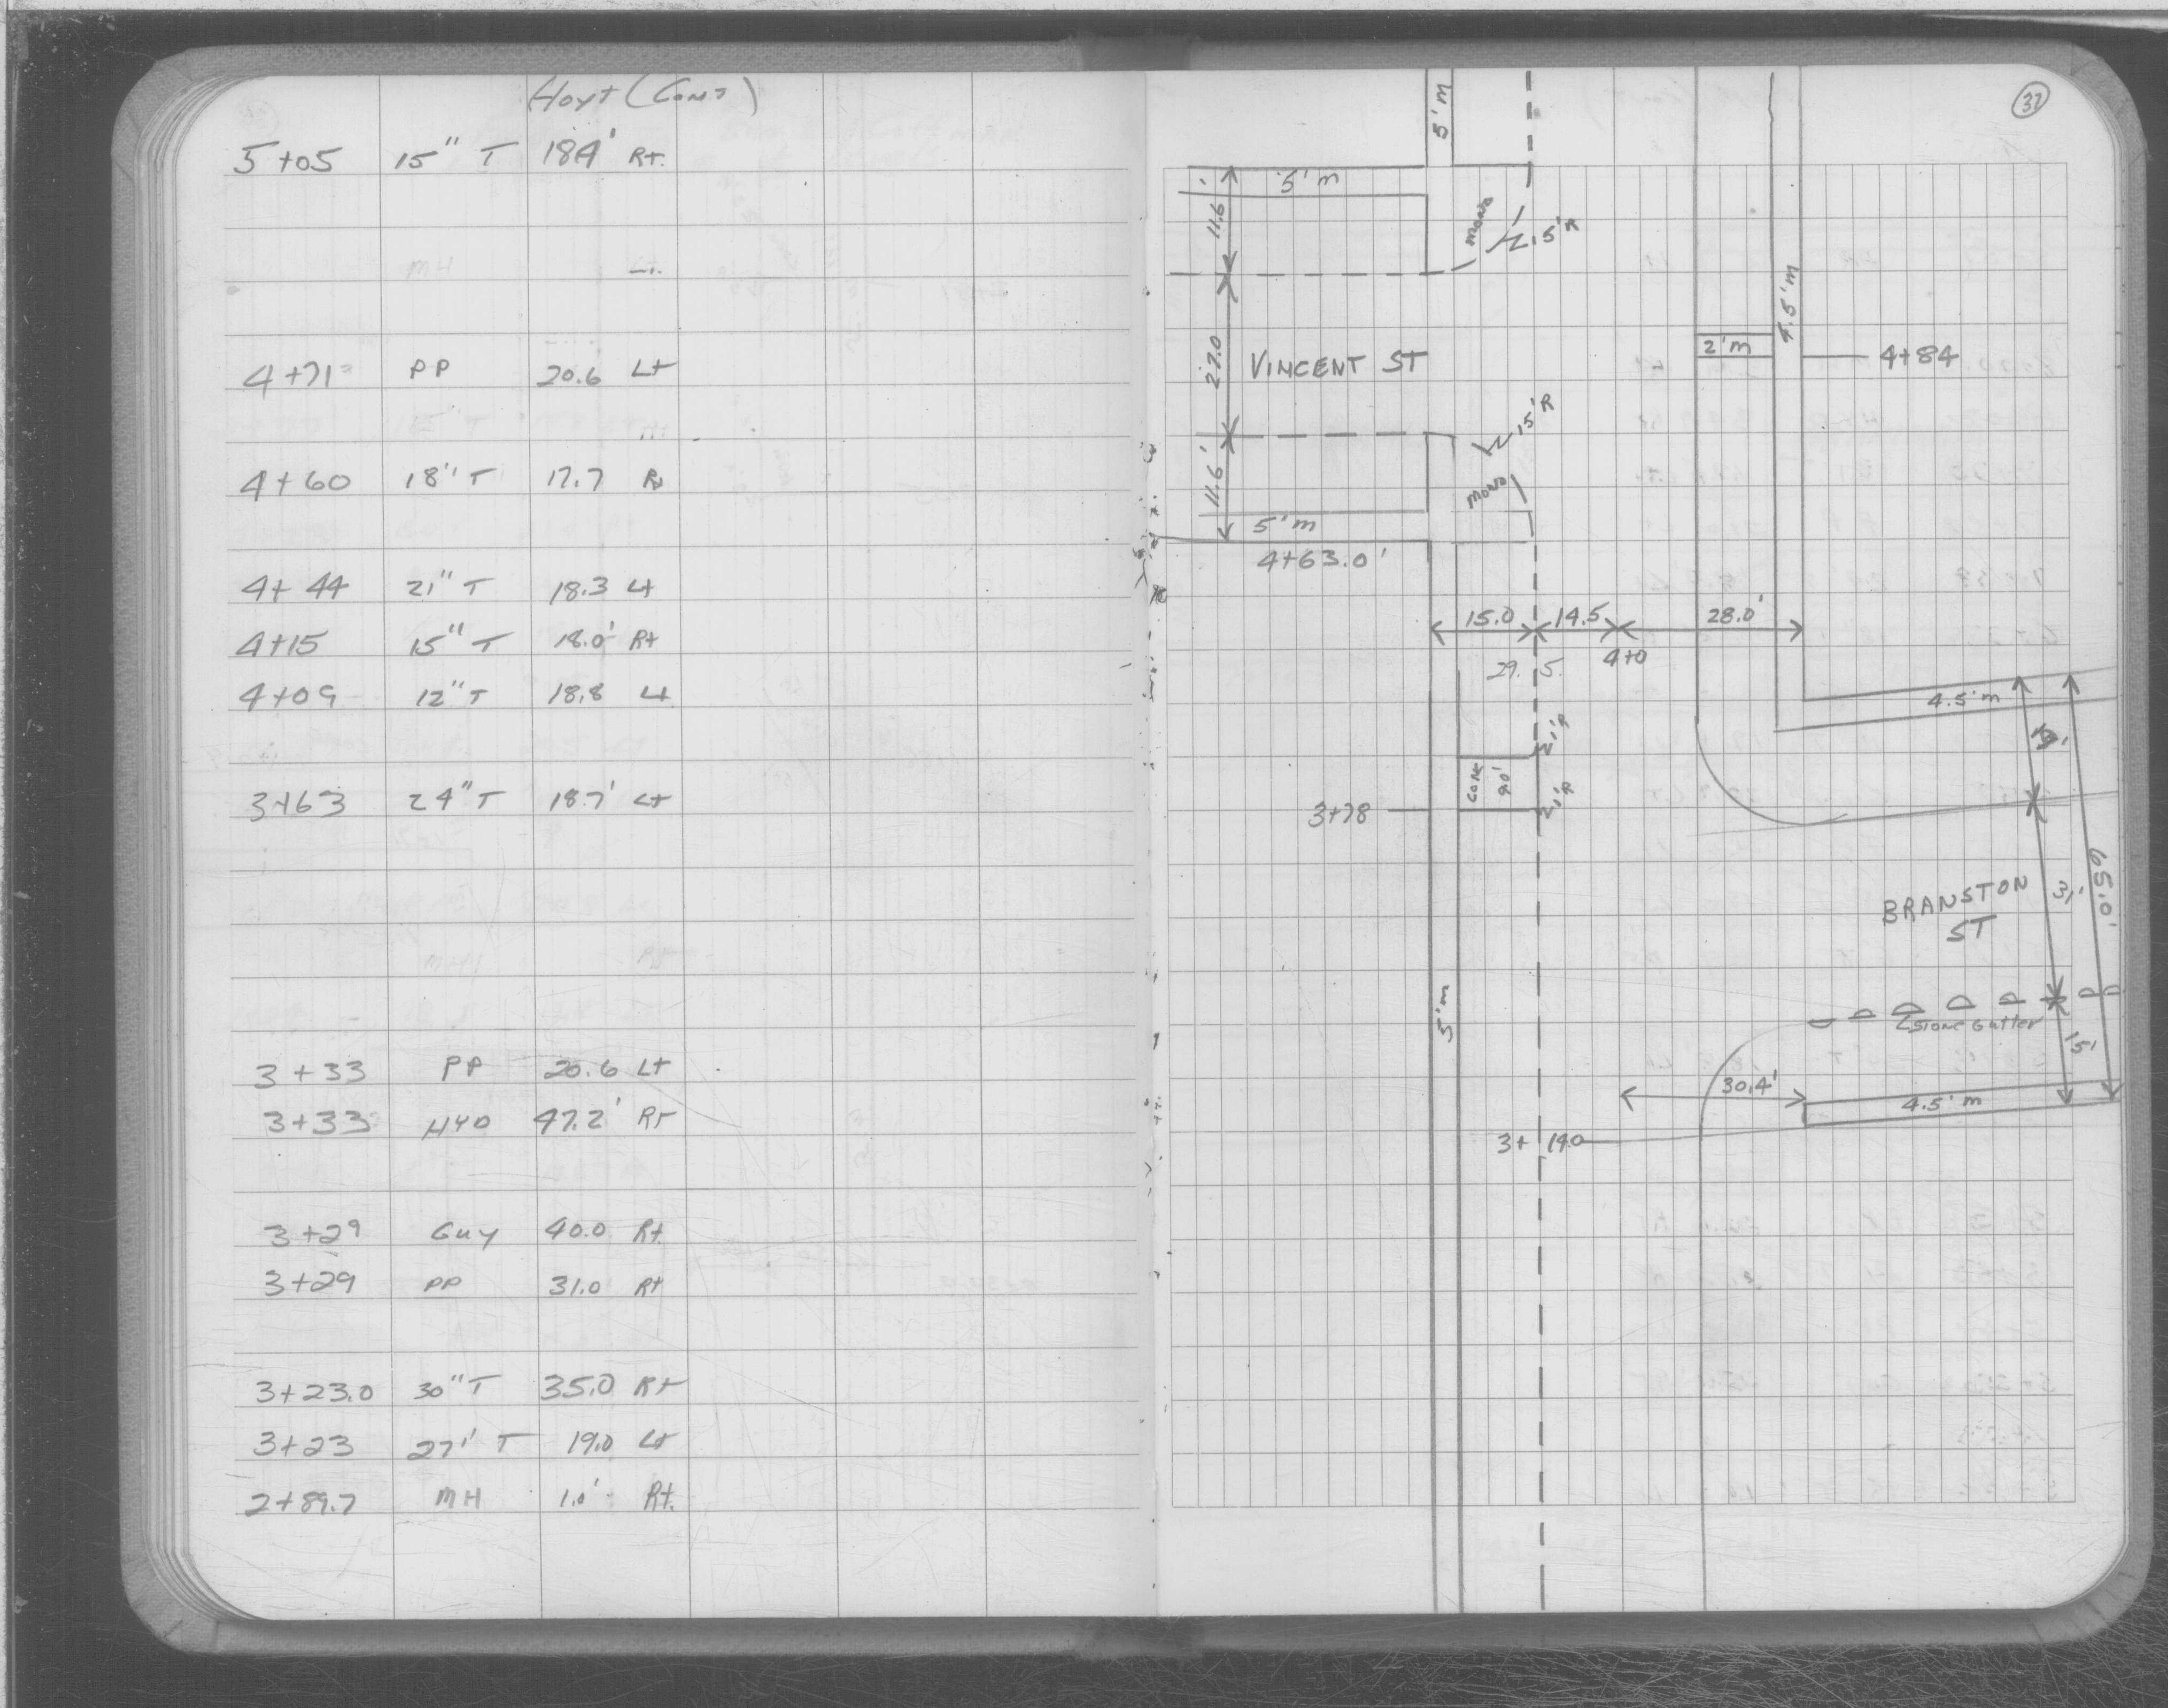 Hoyt (Cont)
5+05 15" T 18.4' Rt.
4+71 PP 20.6 Lt
4+60 18" T 17.7 Rt
4+44 21" T 18.3 Lt
4+15 15" T 18.0' Rt
4+09 12" T 18.8 Lt
3+63 24" T 18.7' Lt
3+33 PP 20.6 Lt
3+33 HYD 47.2' Rt
3+29 Guy 40.0 Rt
3+29 PP 31.0 Rt
3+23.0 30" T 35.0 Rt
3+23 27" T 19.0 Lt
2+89.7 MH 1.0' Rt.
37
5'm
5'm
11.6'
mono
15'R
4.5'm
27.0
VINCENT ST
2'm
4+84
15'R
11.6'
mono
5'm
4+63.0'
15.0 14.5 28.0'
29.5
4+0
4.5'm
1'R
Conc
20'
1'R
3+78
BRANSTON
ST
31'
65.0'
5'm
Stone Gutter
15'
30.4'
4.5'm
3+14.0